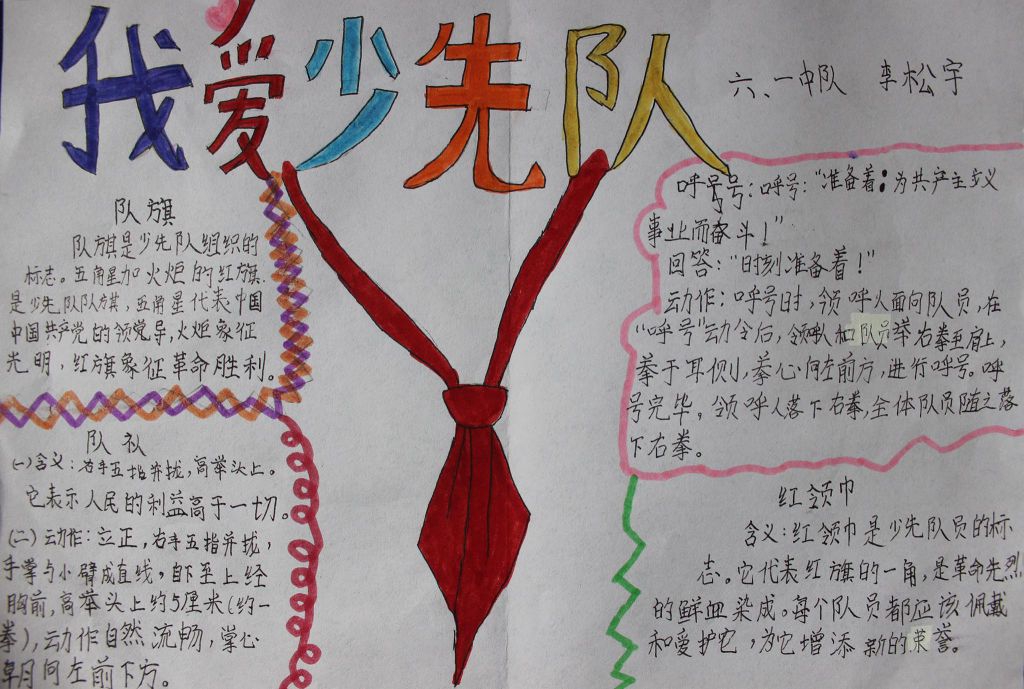 我爱少先队
六、一中队 李松宇
队旗
队旗是少先队组织的
标志。五角星加火炬的红旗
是少先队队旗，五角星代表中国
中国共产党的领党导，火炬象征
光明，红旗象征革命胜利。
队礼
(一)含义：右手五指并拢，高举头上。
它表示人民的利益高于一切。
(二)动作：立正，右手五指并拢，
手掌与小臂成直线，自下至上经
胸前，高举头上约5厘米(约一
拳)，动作自然流畅，掌心
朝向左前下方。
呼号：呼号："准备着：为共产主义
事业而奋斗！"
回答："时刻准备着！"
动作：呼号时，领呼人面向队员，在
"呼号"动令后，领呼人和队员举右拳至肩上，
拳于耳侧，拳心向左前方，进行呼号。呼
号完毕，领呼人落下右拳，全体队员随之落
下右拳。
红领巾
含义：红领巾是少先队员的标
志。它代表红旗的一角，是革命先烈
的鲜血染成。每个队员都应该佩戴
和爱护它，为它增添新的荣誉。